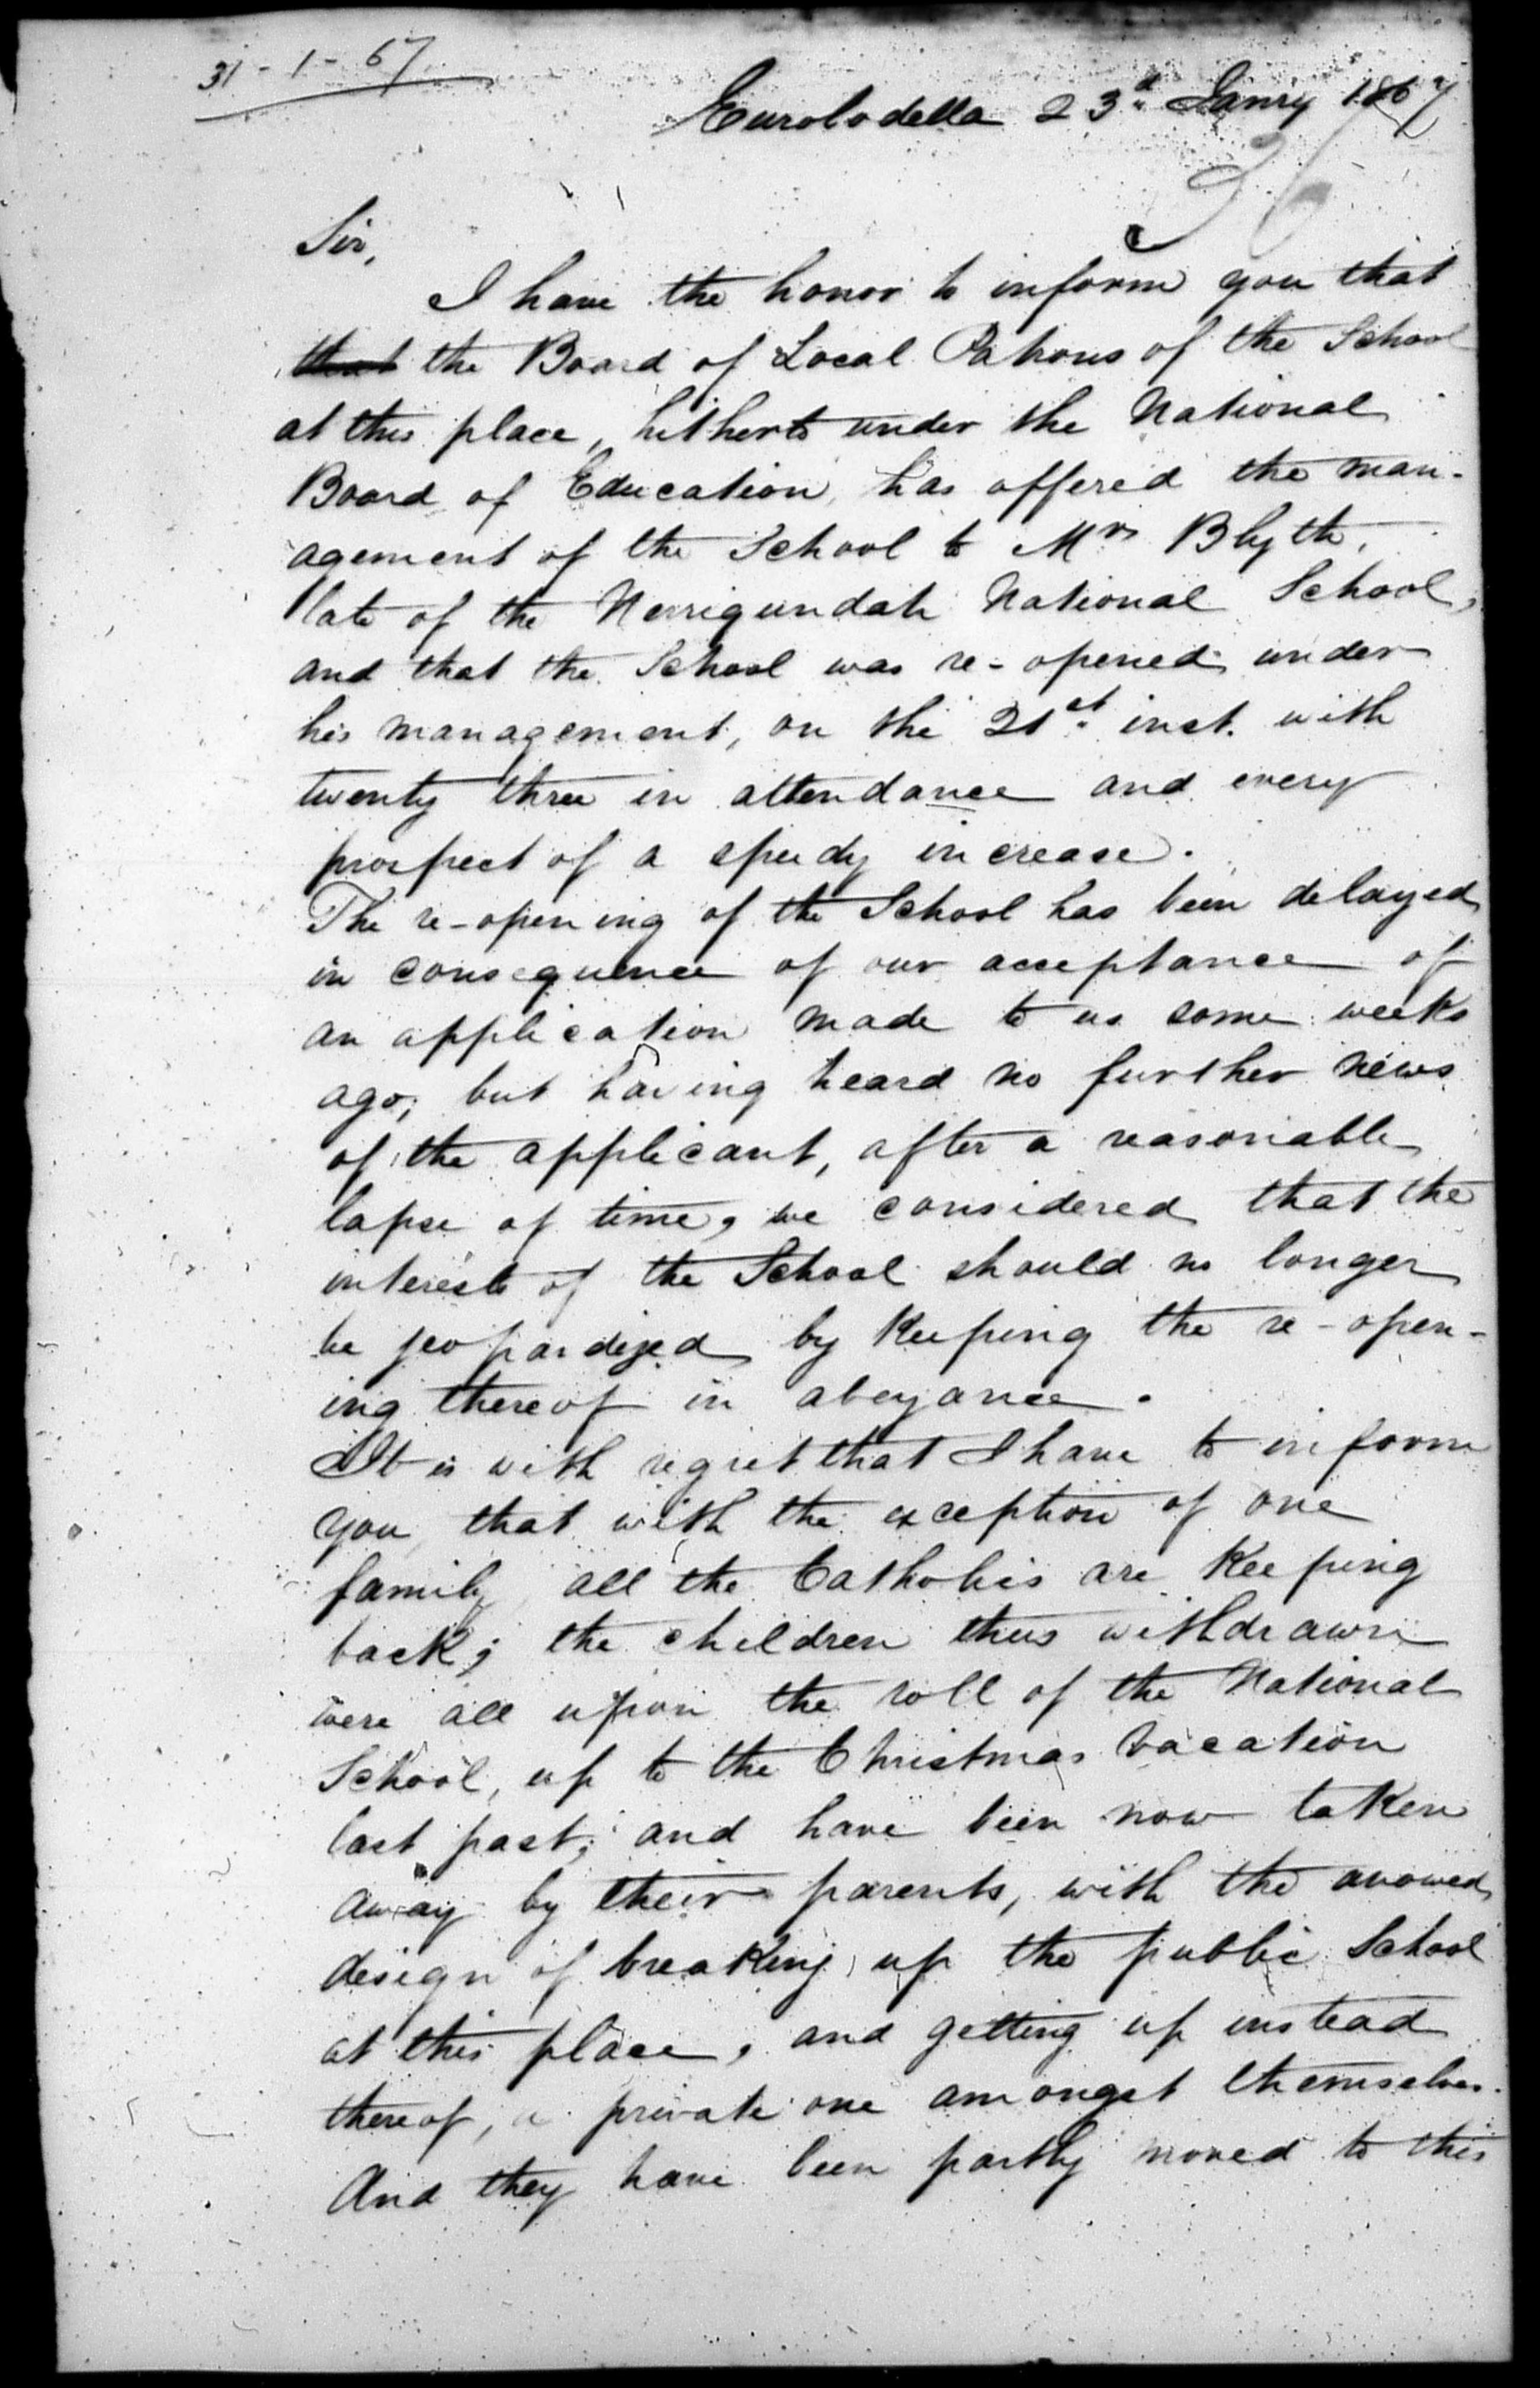 31-1-67
Eurobodella 23d Janry 1867
36
Sir,
I have the honor to inform you that
that the Board of Local Patrons of the School
at this place, hitherto under the National
Board of Education, has offered the man-
agement of the School to Mr Blyth,
late of the Nerrigundah National School,
and that the School was re-opened under
his management, on the 21st inst. with
twenty three in attendance and every
prospect of a speedy increase.
The re-opening of the School has been delayed
in consequence of our acceptance of
an application made to us some weeks
ago; but having heard no further news
of the applicant, after a reasonable
lapse of time, we considered that the
interests of the School should no longer
be jeopardized by keeping the re-open-
ing thereof in abeyance.
It is with regret that I have to inform
you, that with the exception of one
family, all the Catholics are keeping
back; the children thus withdrawn
were all upon the roll of the National
School, up to the Christmas Vacation
last past; and have been now taken
away by their parents, with the avowed
design of breaking up the public School
at this place, and getting up instead
thereof, a private one amongst themselves.
And they have been partly moved to this